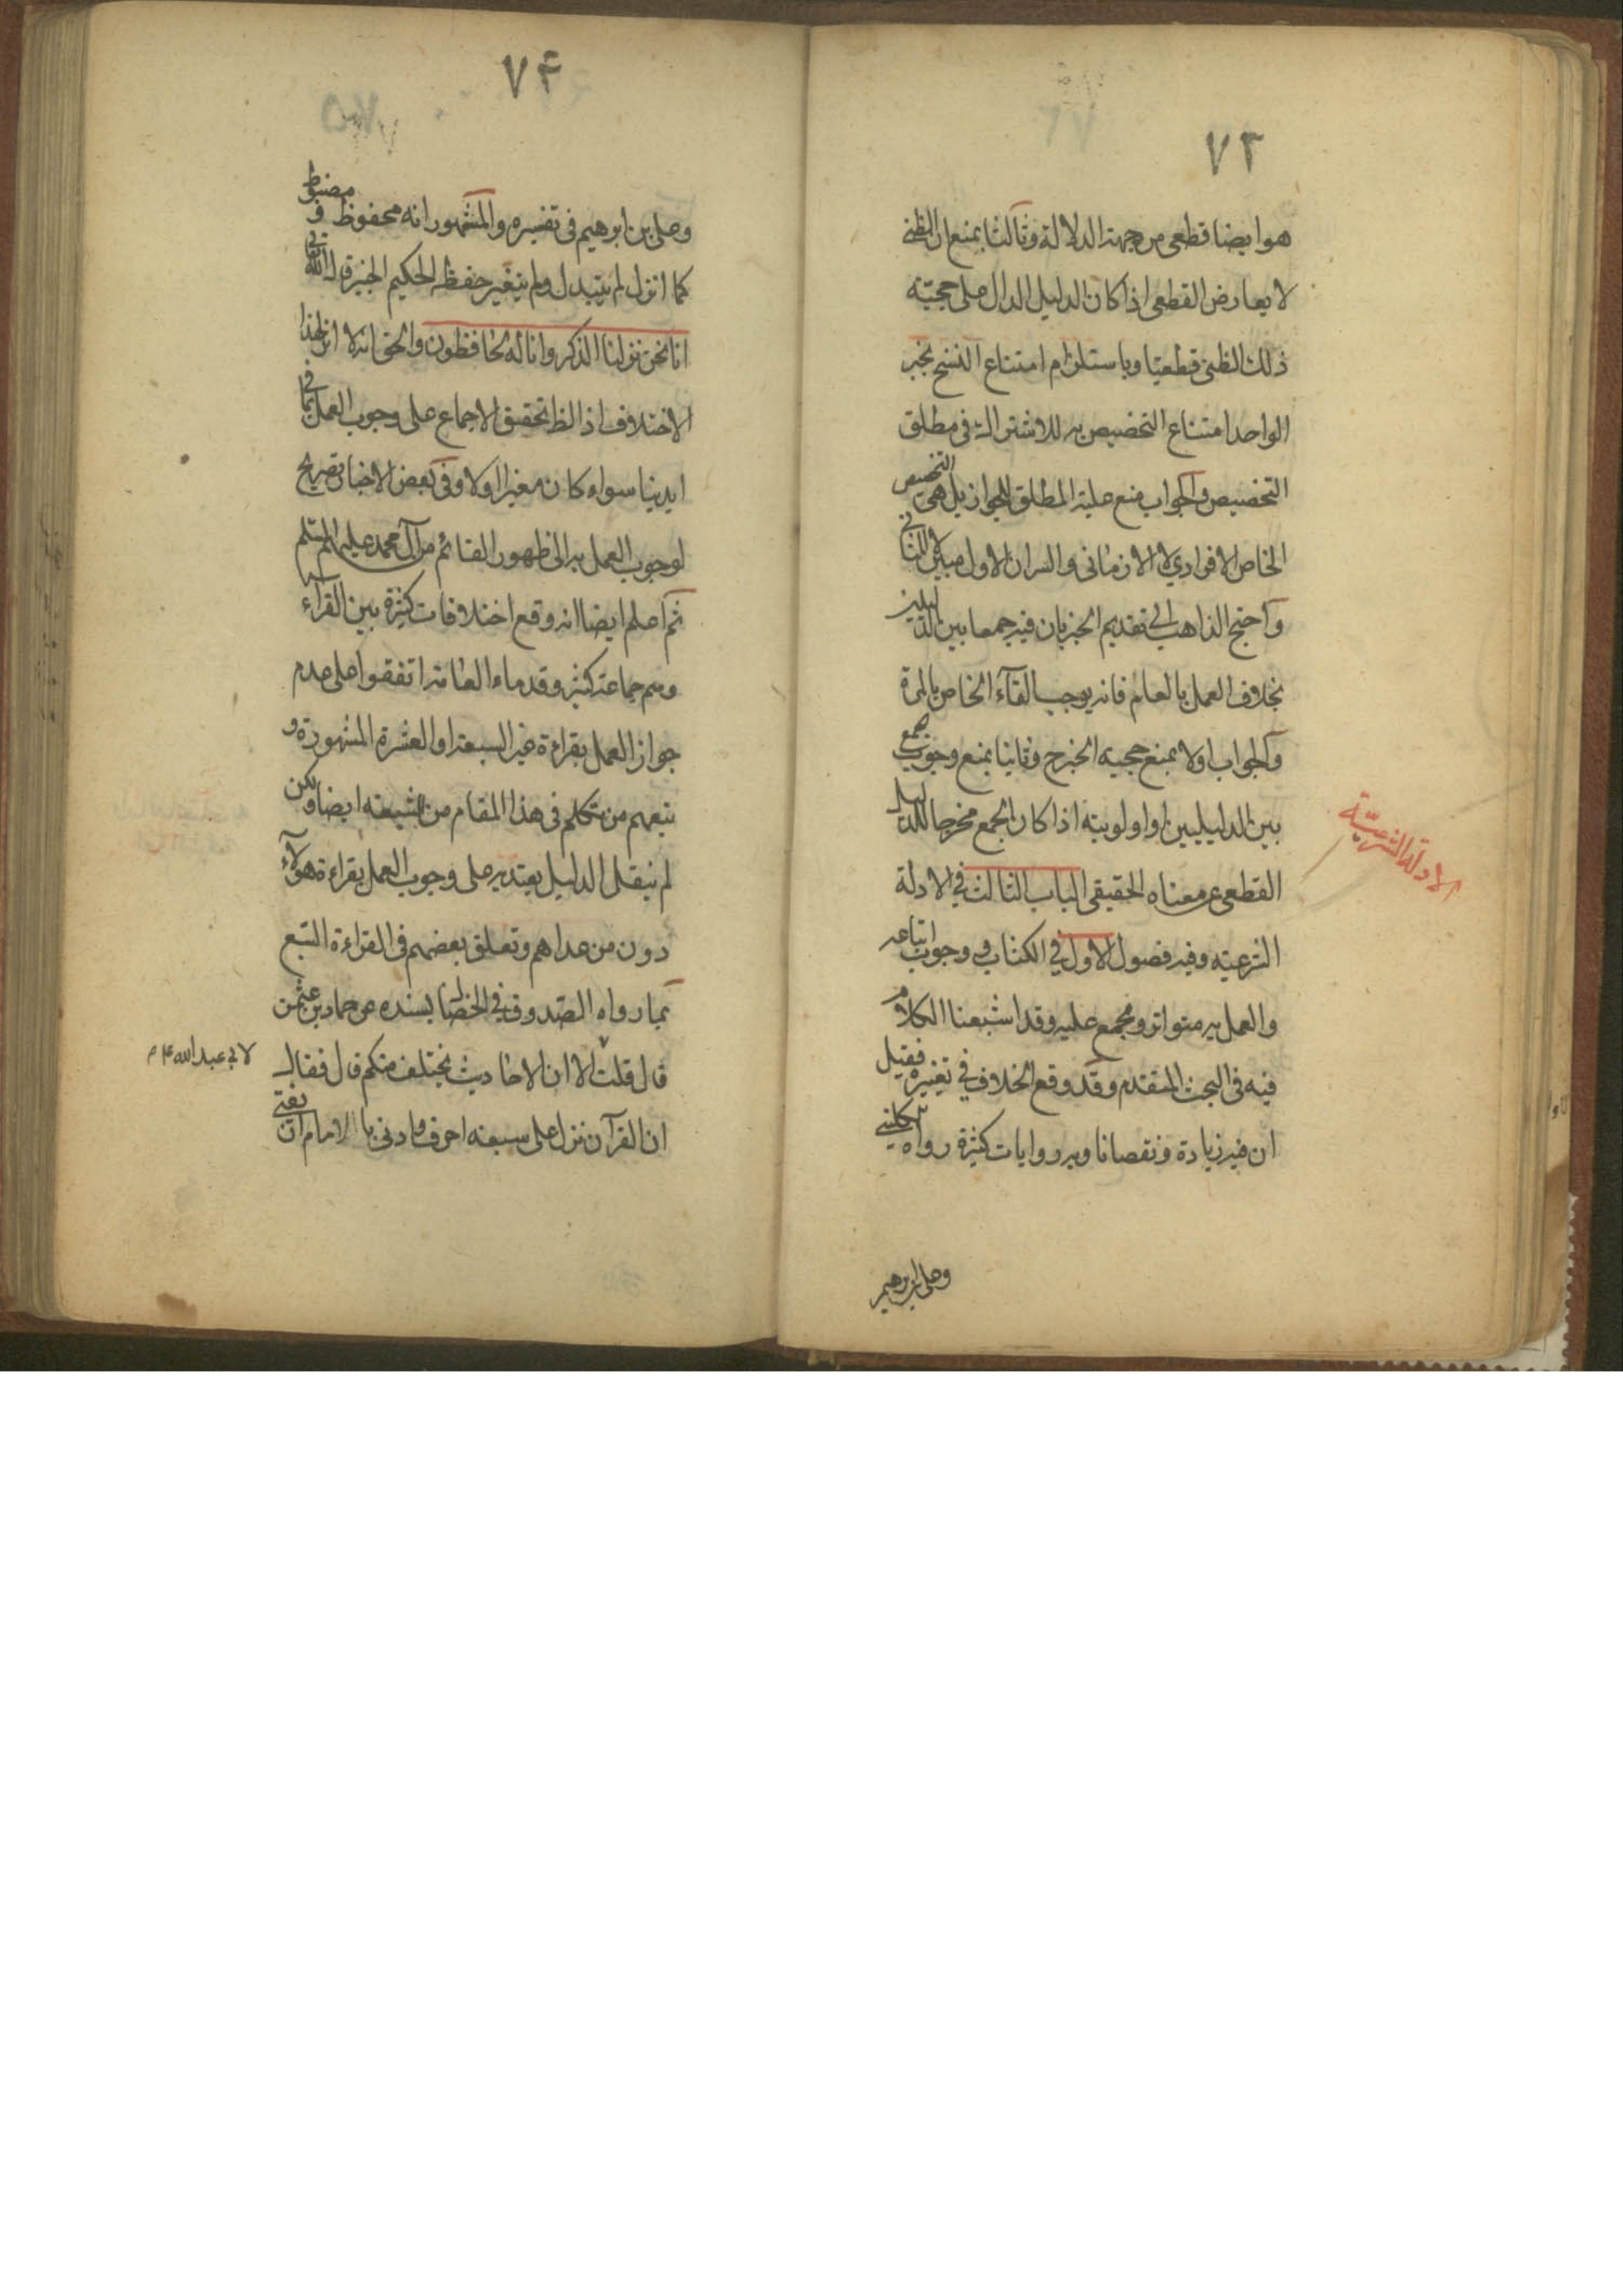 ٧٣
هو ايضا قطعى من جهة الدلالة وثالثا بمنع ان الظنى
لا يعارض القطعى اذا كان الدليل الدال على حجيته
ذلك الظنى قطعيا وباستلزام امتناع النسخ بخبر
الواحد امتناع التخصيص به للاشتراك فى مطلق
التخصيص والجواب منع علية المطلق للجواز بل هى التخصيص
الخاص الافرادي لا الازمانى والسر ان الاول مبين
واحتج الذاهب الى تقديم الخبر بان فيه جمعا بين الدليلين
بخلاف العمل بالعام فانه يوجب الغاء الخاص بالمرة
والجواب اولا بمنع حجيه الخبر ح وثانيا بمنع وجوب جمع
بين الدليليين او اولويته اذا كان الجمع مخرجا للدليل
القطعى عن معناه الحقيقى الباب الثالث فى الادلة
الادلة الشرعيّة
الشرعيه وفيه فصول الاول فى الكتاب و وجوب اتباعه
والعمل به متواتر ومجمع عليه وقد اشبعنا الكلام
فيه فى البحث المتقدم وقد وقع الخلاف فى تغييره فقيل
ان فيه زيادة ونقصانا وبه روايات كثيرة رواه الكلينى
وعلى بن ابرهيم
٧۴
وعلى بن ابرهيم فى تفسيره والمشهور انه محفوظ و مضبوط
كما انزل لم يتبدل ولم يتغير حفظه الحكيم الخبير قال الله تعالى
انا نحن نزلنا الذكر وانا له لحافظون والحق انه لا اثر لهذا
الاختلاف اذ الظ تحقق الاجماع على وجوب العمل بما فى
ايدينا سواء كان مغيرا اولا وفى بعض الاخبار تصريح
لوجوب العمل به الى ظهور القائم من آل محمد عليهم السلم
ثم اعلم ايضا انه وقع اختلافات كثيرة بين القراء
وهم جماعة كثيرة وقدماء العامة اتفقوا على عدم
جواز العمل بقراءة غير السبعة او العشرة المشهورة و
تبعهم من تكلم فى هذا المقام من الشيعه ايضا ولكن
لم ينقل الدليل يعتد به على وجوب العمل بقراءة هؤلاء
دون من عداهم وتعلق بعضهم فى القراءة السبع
بما رواه الصدوق فى الخصال بسنده عن حماد بن عثمن
قال قلت ان الاحاديث تختلف منكم قال فقال
لابى عبد الله ع م
ان القرآن نزل على سبعه احرف وادنى ما للامام ان يفتى